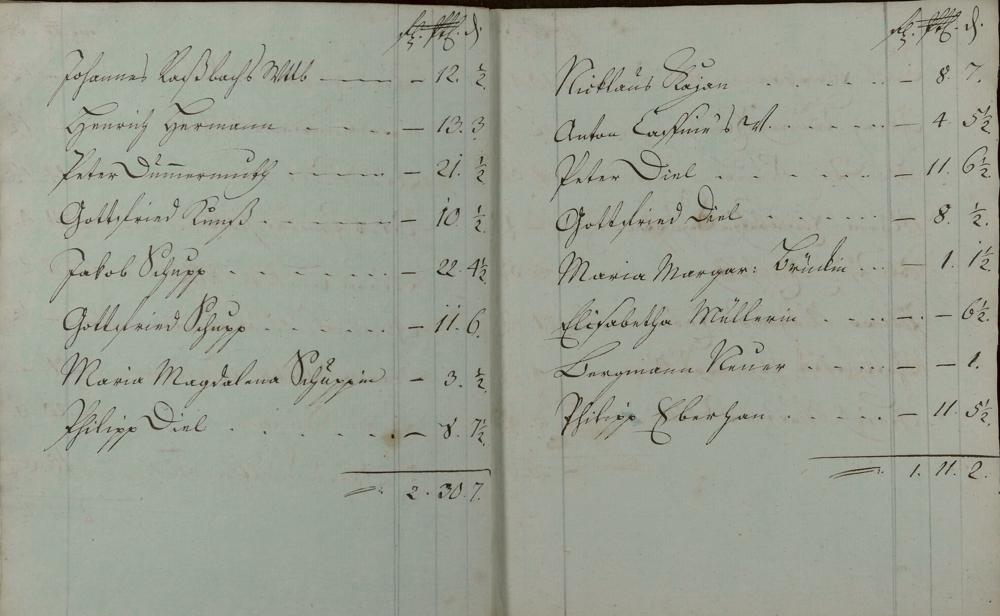 fl. Alb. d.
Johannes Raßbachs Wtb — — 12. ½
Henrich Hermann . . . . — 13. 3
Peter Dümmermuth . . . . — 21. ½
Gottfried Kunß . . . . . — 10 ½
Jakob Schupp . . . . . . — 22. 4½
Gottfried Schupp . . . . . — 11. 6.
Maria Magdalena Schuppin — 3. ½
Philipp Diel . . . . . . — 8. 7½
2. 30. 7.
fl. Alb. d.
Nicklaus . . . . . — 8. 7.
Anton . . . . . — 4. 5½
Peter Diel . . . . . . — 11. 6½
Gottfried Diel . . . . . — 8. ½
Maria Margar: Brückin . . . — 1. 1½
Elisabetha Müllerin . . . . — . — 6½
Bergmann Neuer . . . . — — 1.
Philipp Eberhan . . . . . — 11. 5½
1. 11. 2.